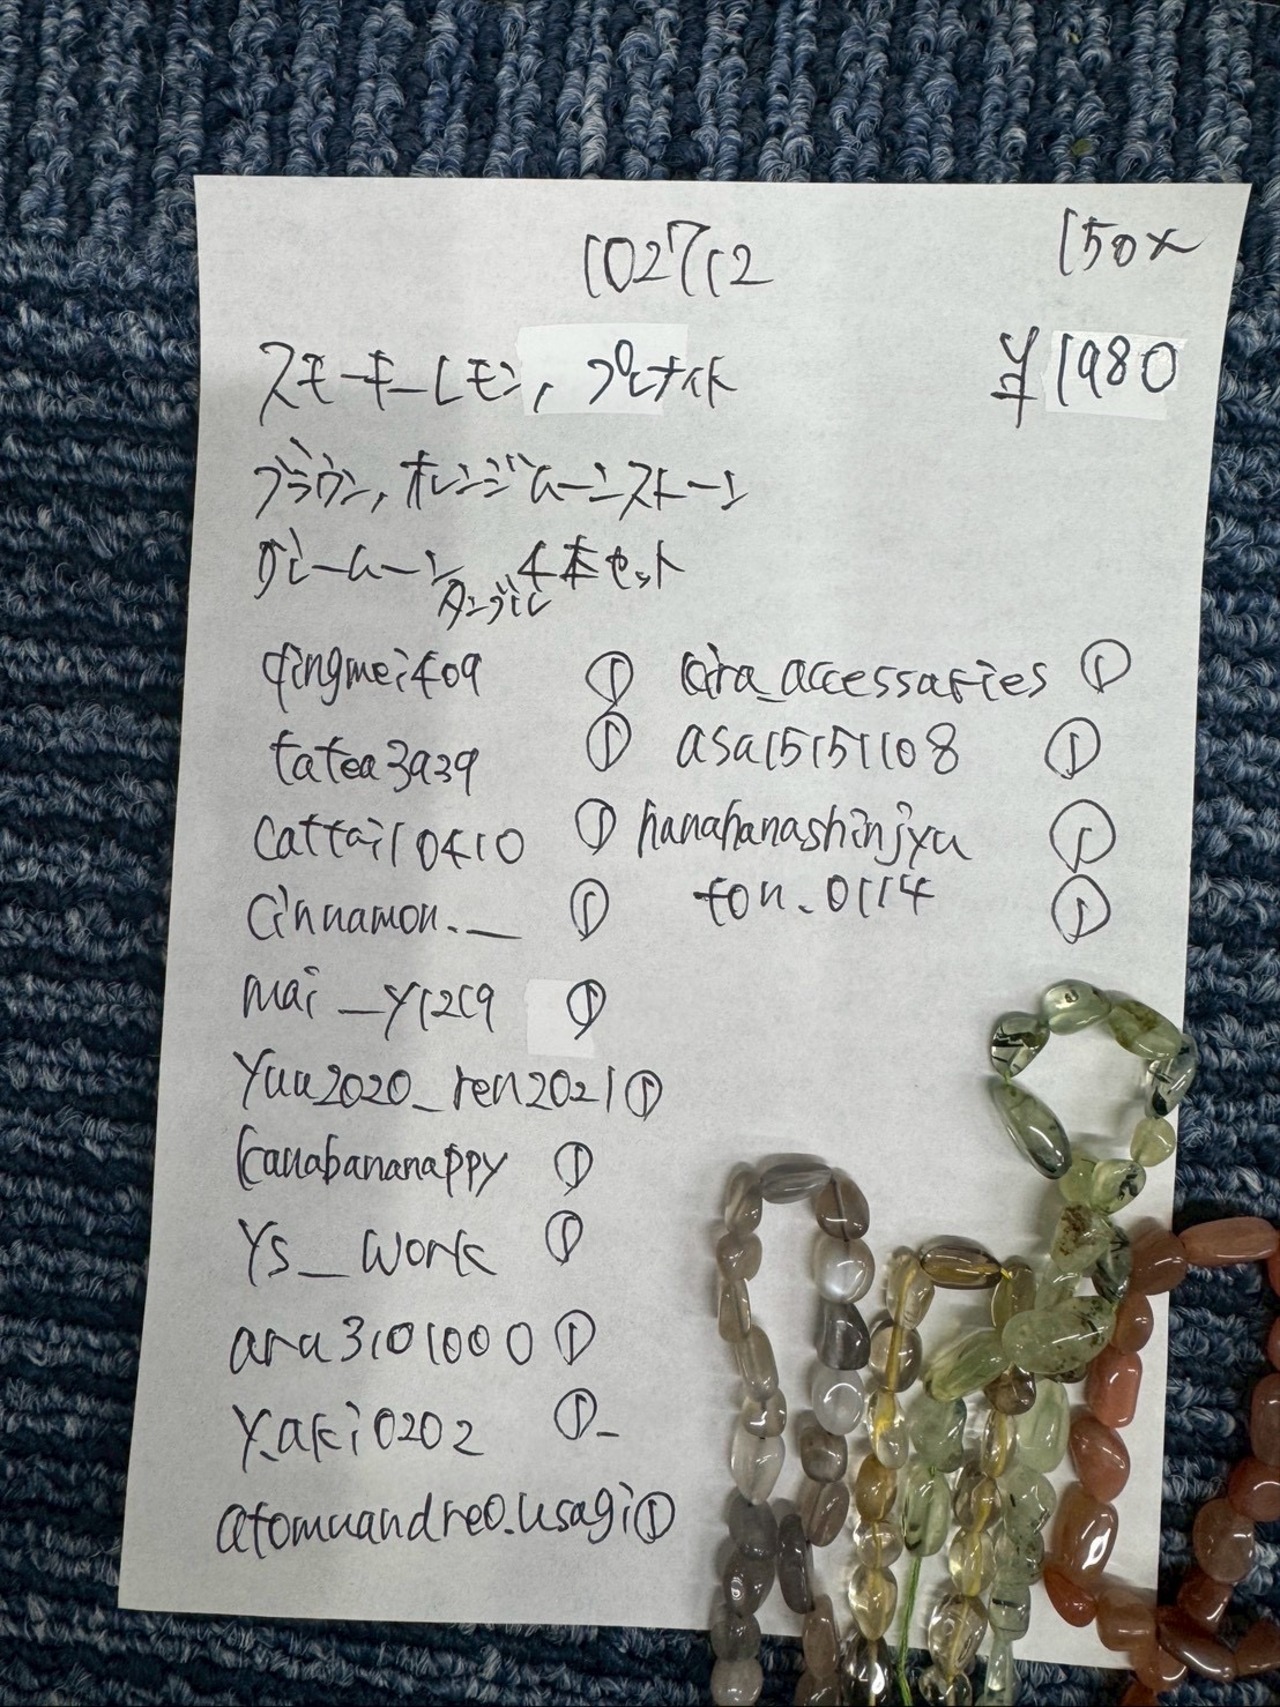 102712
150x
スモーキーレモン, プレナイト
¥1980
ブラウン, オレンジムーンストーン
グレームーン 4本セット
タンブル
qingmei409 ①
tatea3939 ①
cattail0410 ①
cinnamon.__ ①
mai_y1219 ①
yuu2020_ren2021 ①
kanabananappy ①
ys__work ①
aru3101000 ①
y.aki0202 ①
atomuandreo.usagi ①
aira_accessaries ①
asa15151108 ①
hanahanashinjyu ①
ton.0114 ①